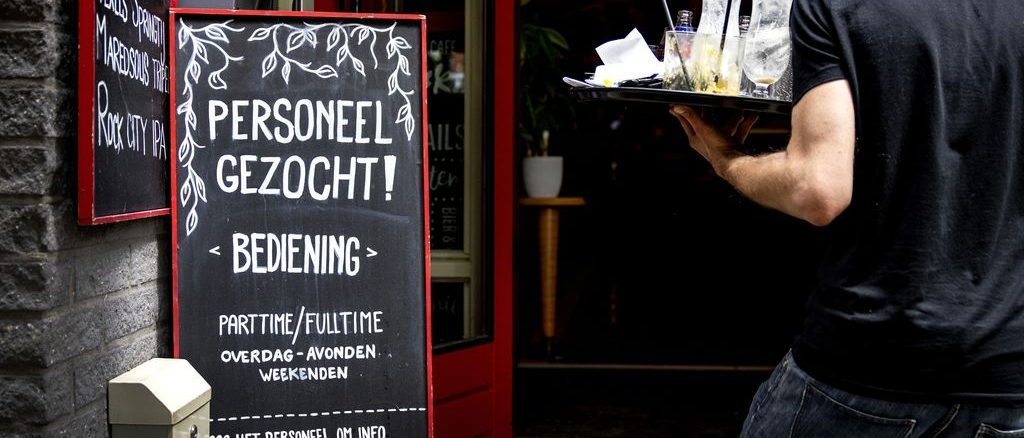 MAREDSOUS
ROCK CITY IPA
PERSONEEL
GEZOCHT!
< BEDIENING >
PARTTIME/FULLTIME
OVERDAG-AVONDEN
WEEKENDEN
HET PERSONEEL OM INFO
CAFE
BIER &